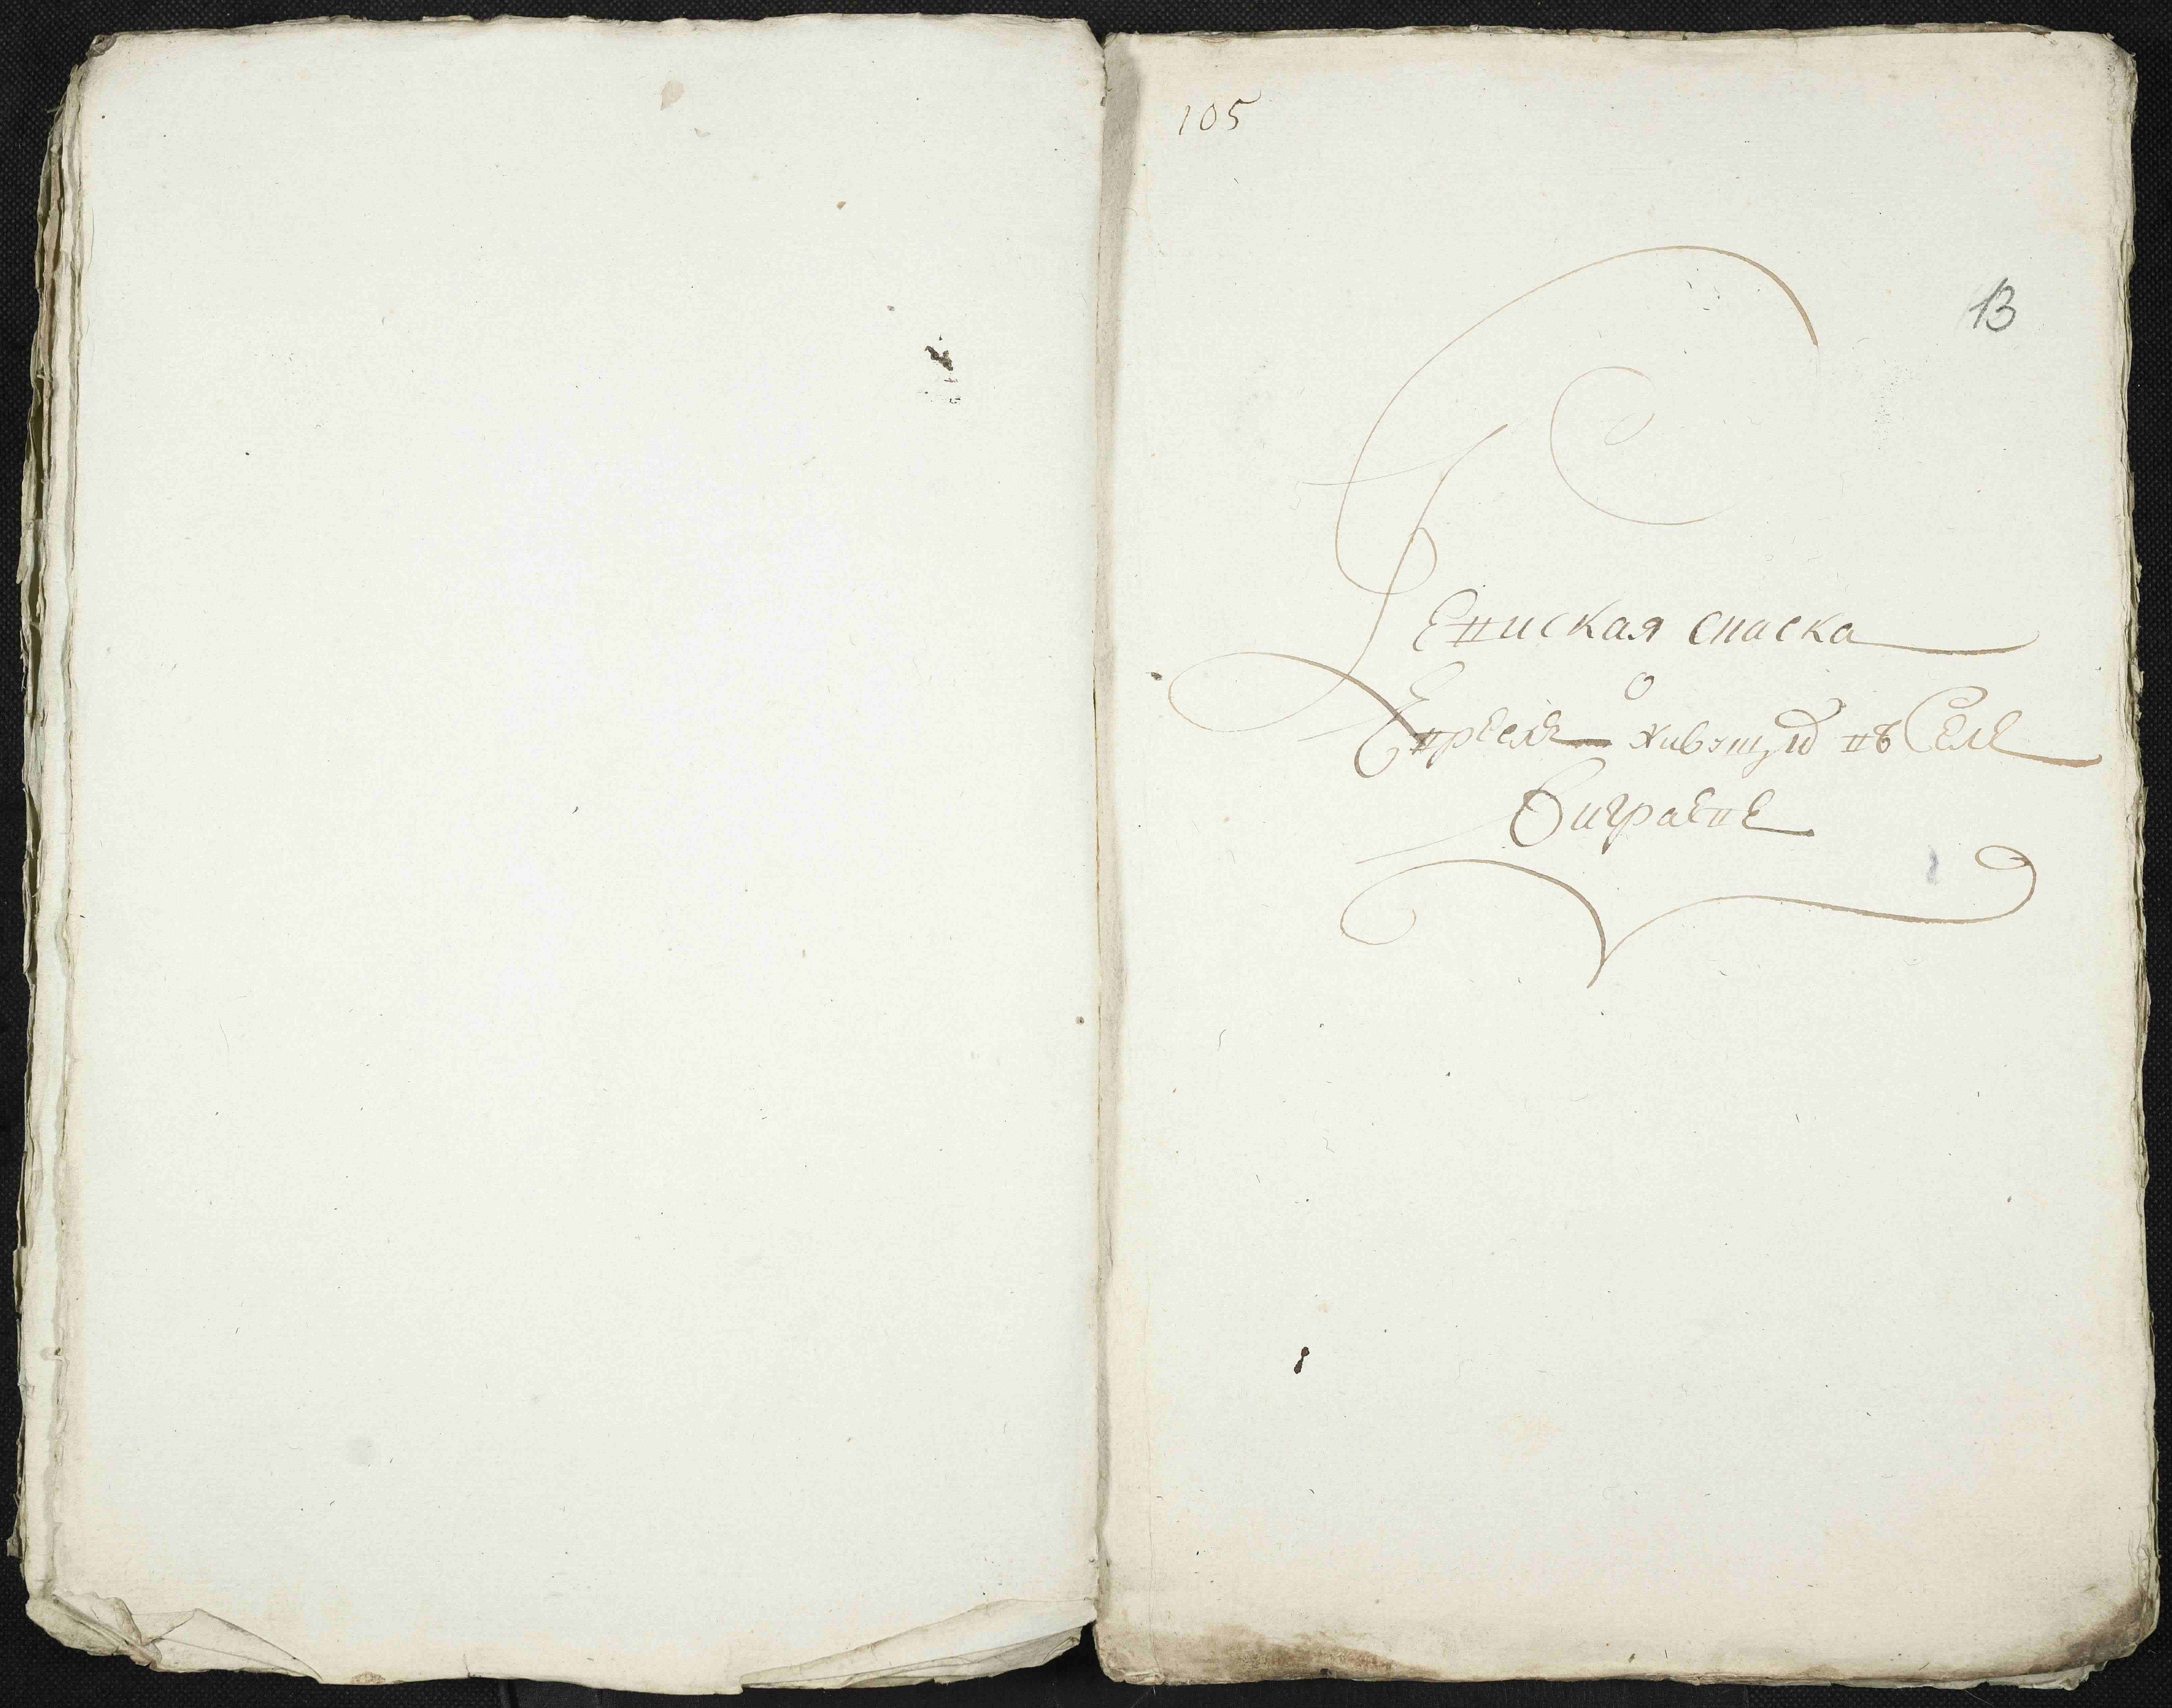 105
13
Ревиская скаска
о
Евреяхъ живущихъ въ Селе
Виграеве